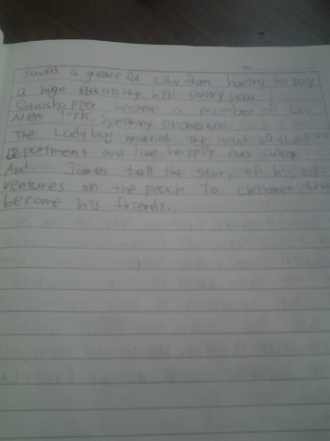 saved a greatful city from having to pay
a huge electricity bill every year.
Grasshopper became a member of the
New York Symphony orchestra
The Ladybug married the Head of the
Department and live happily ever after.
And James tell the story of his ad
ventures on the peach to children, who
become his friends.